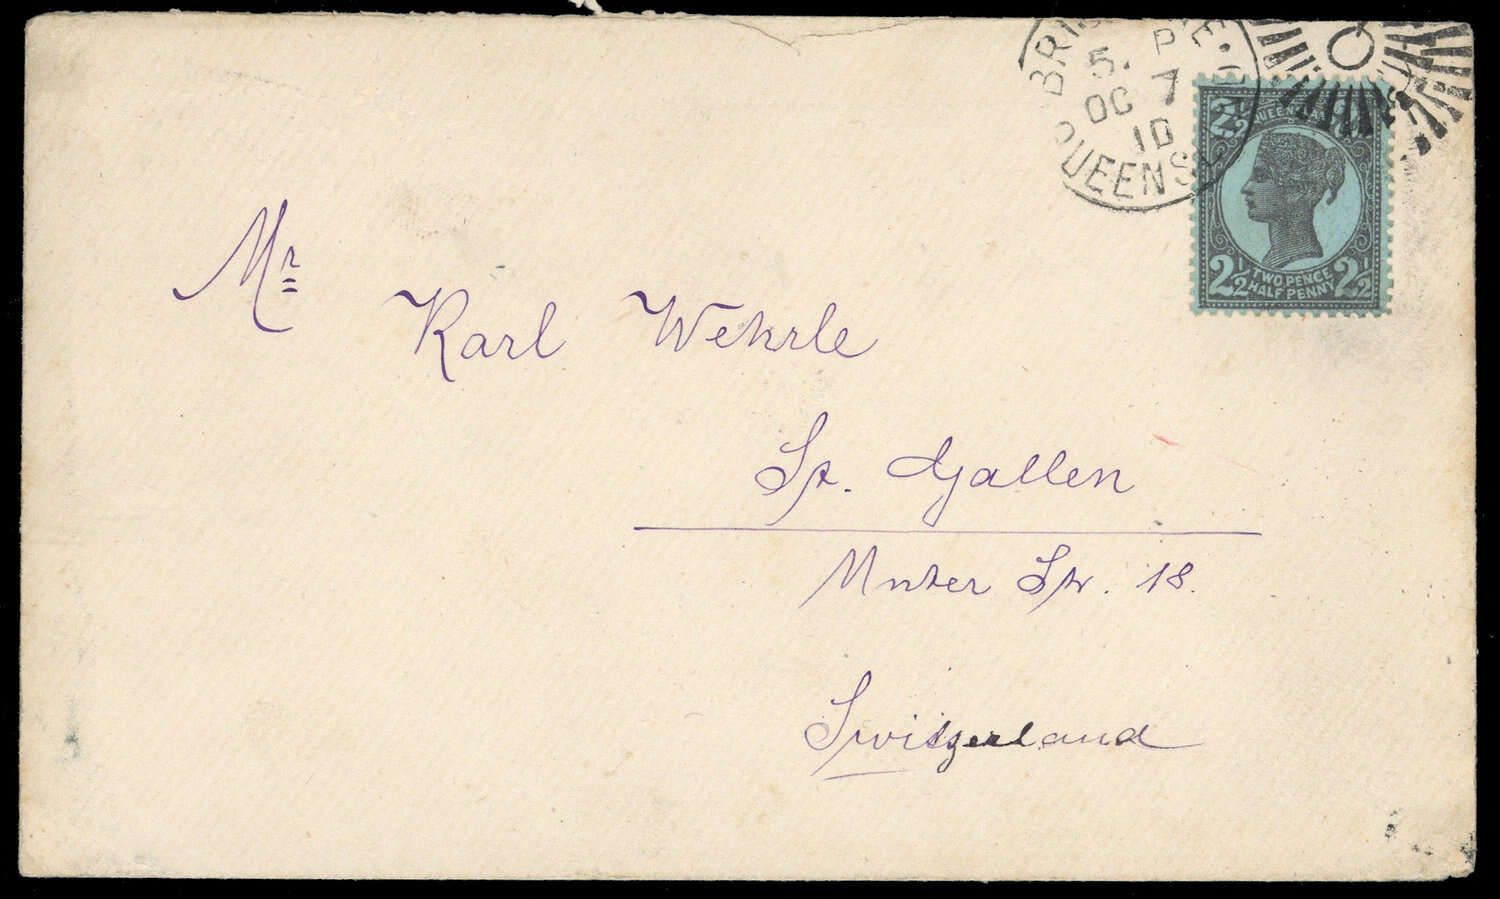 BRISBANE
5. P
OC 7
10
QUEENSL
2½
QUEENSLAND
TWO PENCE
2½ HALF PENNY 2½
Mr
Karl Wehrle
St. Gallen
Unter Str. 18.
Switzerland